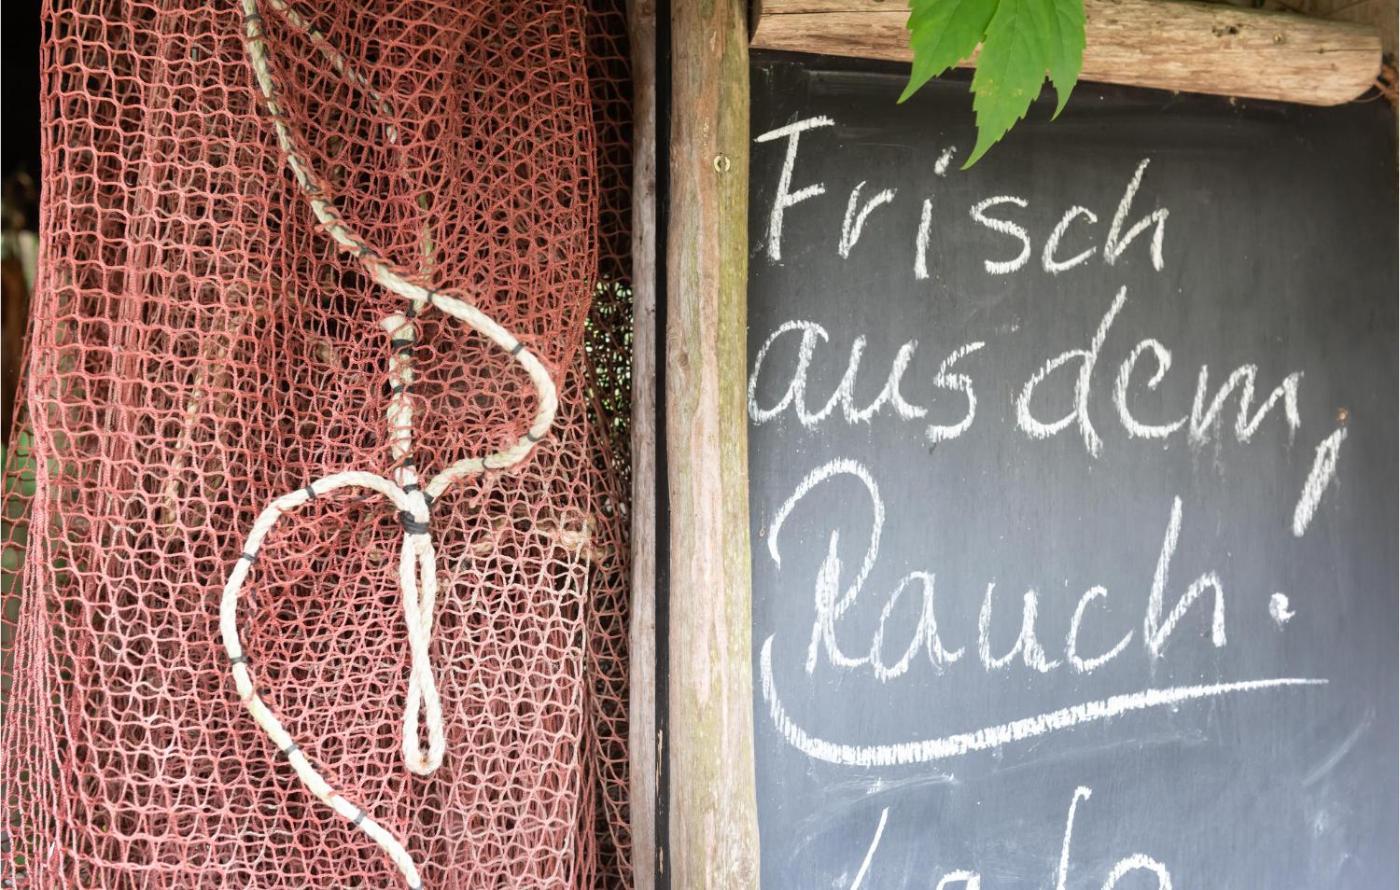 Frisch
aus dem,
Rauch.